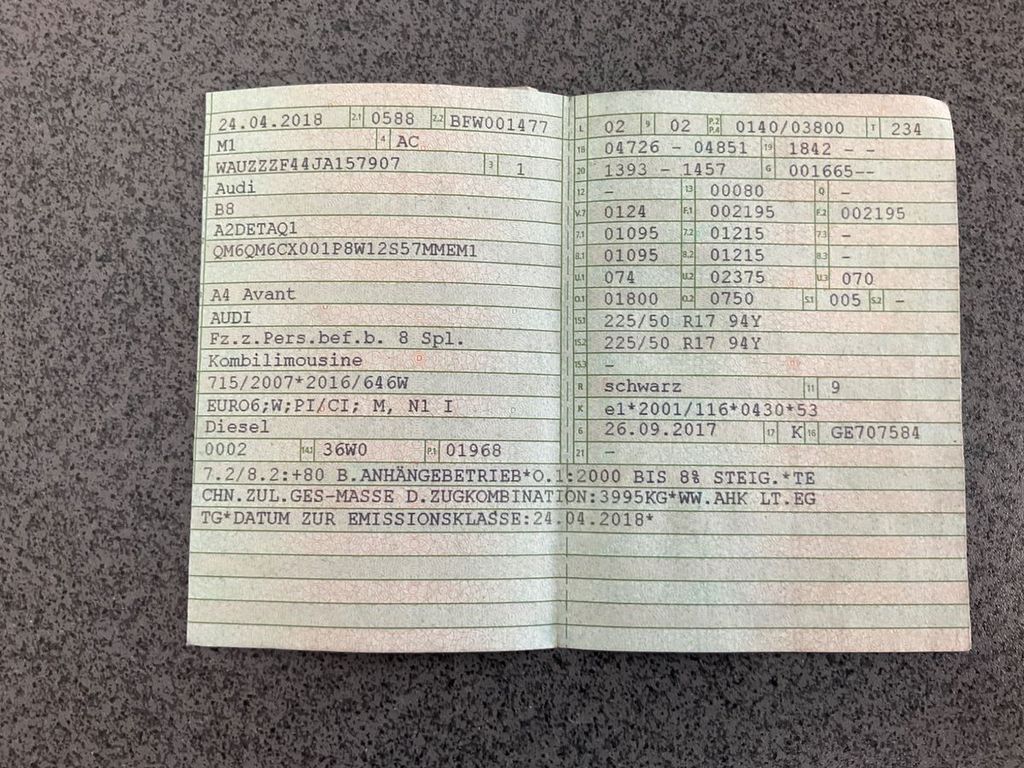 24.04.2018 2.1 0588 2.2 BFW001477
M1 4 AC
WAUZZZF44JA157907 3 1
Audi
B8
A2DETAQ1
QM6QM6CX001P8W12S57MMEM1
A4 Avant
AUDI
Fz.z.Pers.bef.b. 8 Spl.
Kombilimousine
715/2007*2016/646W
EURO6;W;PI/CI; M, N1 I
Diesel
0002 14.1 36W0 P.1 01968
L 02 9 02 P.2 P.4 0140/03800 T 234
18 04726 - 04851 19 1842 - -
20 1393 - 1457 G 001665--
12 - 13 00080 Q -
V.7 0124 F.1 002195 F.2 002195
7.1 01095 7.2 01215 7.3 -
8.1 01095 8.2 01215 8.3 -
U.1 074 U.2 02375 U.3 070
O.1 01800 O.2 0750 S.1 005 S.2 -
15.1 225/50 R17 94Y
15.2 225/50 R17 94Y
15.3 -
R schwarz 11 9
K e1*2001/116*0430*53
6 26.09.2017 17 K 16 GE707584
21 -
7.2/8.2:+80 B.ANHÄNGEBETRIEB*O.1:2000 BIS 8% STEIG.*TE
CHN.ZUL.GES-MASSE D.ZUGKOMBINATION:3995KG*WW.AHK LT.EG
TG*DATUM ZUR EMISSIONSKLASSE:24.04.2018*